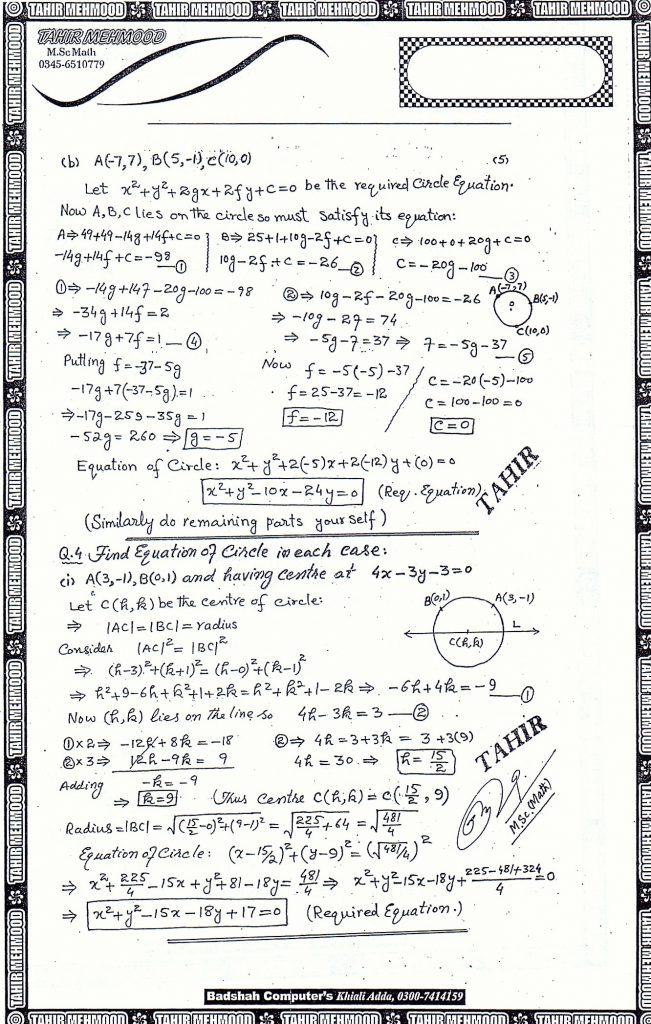 TAHIR MEHMOOD TAHIR MEHMOOD TAHIR MEHMOOD TAHIR MEHMOOD TAHIR MEHMOOD
TAHIR MEHMOOD
M.Sc Math
0345-6510779
(b) A(-7,7), B(5,-1), C(10,0) (5)
Let x²+y²+2gx+2fy+c=0 be the required Circle Equation.
Now A,B,C lies on the circle so must satisfy its equation:
A⇒49+49-14g+14f+c=0 B⇒25+1+10g-2f+c=0 c⇒100+0+20g+c=0
-14g+14f+c=-98 ① 10g-2f+c=-26 ② c=-20g-100 ③
①⇒-14g+14f-20g-100=-98 ②⇒10g-2f-20g-100=-26
A(-7,7) B(5,-1) C(10,0)
⇒ -34g+14f=2 ⇒ -10g-2f=74
⇒ -17g+7f=1 ④ ⇒ -5g-f=37 ⇒ f=-5g-37 ⑤
Putting f=-37-5g Now f=-5(-5)-37 c=-20(-5)-100
-17g+7(-37-5g)=1 f=25-37=-12 c=100-100=0
⇒-17g-259-35g=1 f=-12 c=0
-52g=260 ⇒ g=-5
Equation of Circle: x²+y²+2(-5)x+2(-12)y+(0)=0
x²+y²-10x-24y=0 (Req. Equation)
TAHIR
(Similarly do remaining parts yourself)
Q.4 Find Equation of Circle in each case:
(i) A(3,-1), B(0,1) and having centre at 4x-3y-3=0
Let C(h,k) be the centre of circle:
B(0,1) A(3,-1)
L
C(h,k)
⇒ |AC|=|BC|=radius
Consider |AC|²=|BC|²
⇒ (h-3)²+(k+1)²=(h-0)²+(k-1)²
⇒ h²+9-6h+k²+1+2k=h²+k²+1-2k ⇒ -6h+4k=-9 ①
Now (h,k) lies on the line so 4h-3k=3 ②
①×2⇒ -12h+8k=-18 ②⇒ 4h=3+3k = 3+3(9)
②×3⇒ 12h-9k=9 4h=30 ⇒ h=15/2
Adding -k=-9
⇒ k=9 (Thus centre C(h,k)=C(15/2, 9)
TAHIR
M.Sc.(Math)
Radius=|BC|=√(15/2-0)²+(9-1)² = √225/4+64 = √481/4
Equation of Circle: (x-15/2)²+(y-9)²=(√481/4)²
⇒ x²+225/4-15x+y²+81-18y=481/4 ⇒ x²+y²-15x-18y+225-481+324/4=0
⇒ x²+y²-15x-18y+17=0 (Required Equation.)
Badshah Computer's Khiali Adda, 0300-7414159
TAHIR MEHMOOD TAHIR MEHMOOD TAHIR MEHMOOD TAHIR MEHMOOD TAHIR MEHMOOD